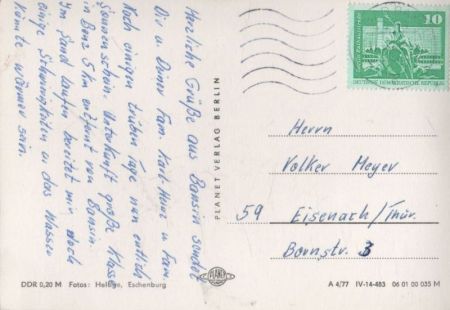 Herzliche Grüße aus Bansin sendet
Dir u. Deiner Fam. Karl-Heinz u. Fam.
Nach einigen trüben Tage nun endlich
Sonnenschein. Unterkunft große Klasse
in Benz 5 km entfernt von Bansin.
Im Sand laufen bereitet mir noch
einige Schwierigkeiten u. das Wasser
könnte wärmer sein.
10
DEUTSCHE DEMOKRATISCHE REPUBLIK
PLANET VERLAG BERLIN
Herrn
Volker Meyer
59 Eisenach/Thür.
Bornstr. 3
PLANET
DDR 0,20 M Fotos: Hellige, Eschenburg
A 4/77 IV-14-483 06 01 00 035 M